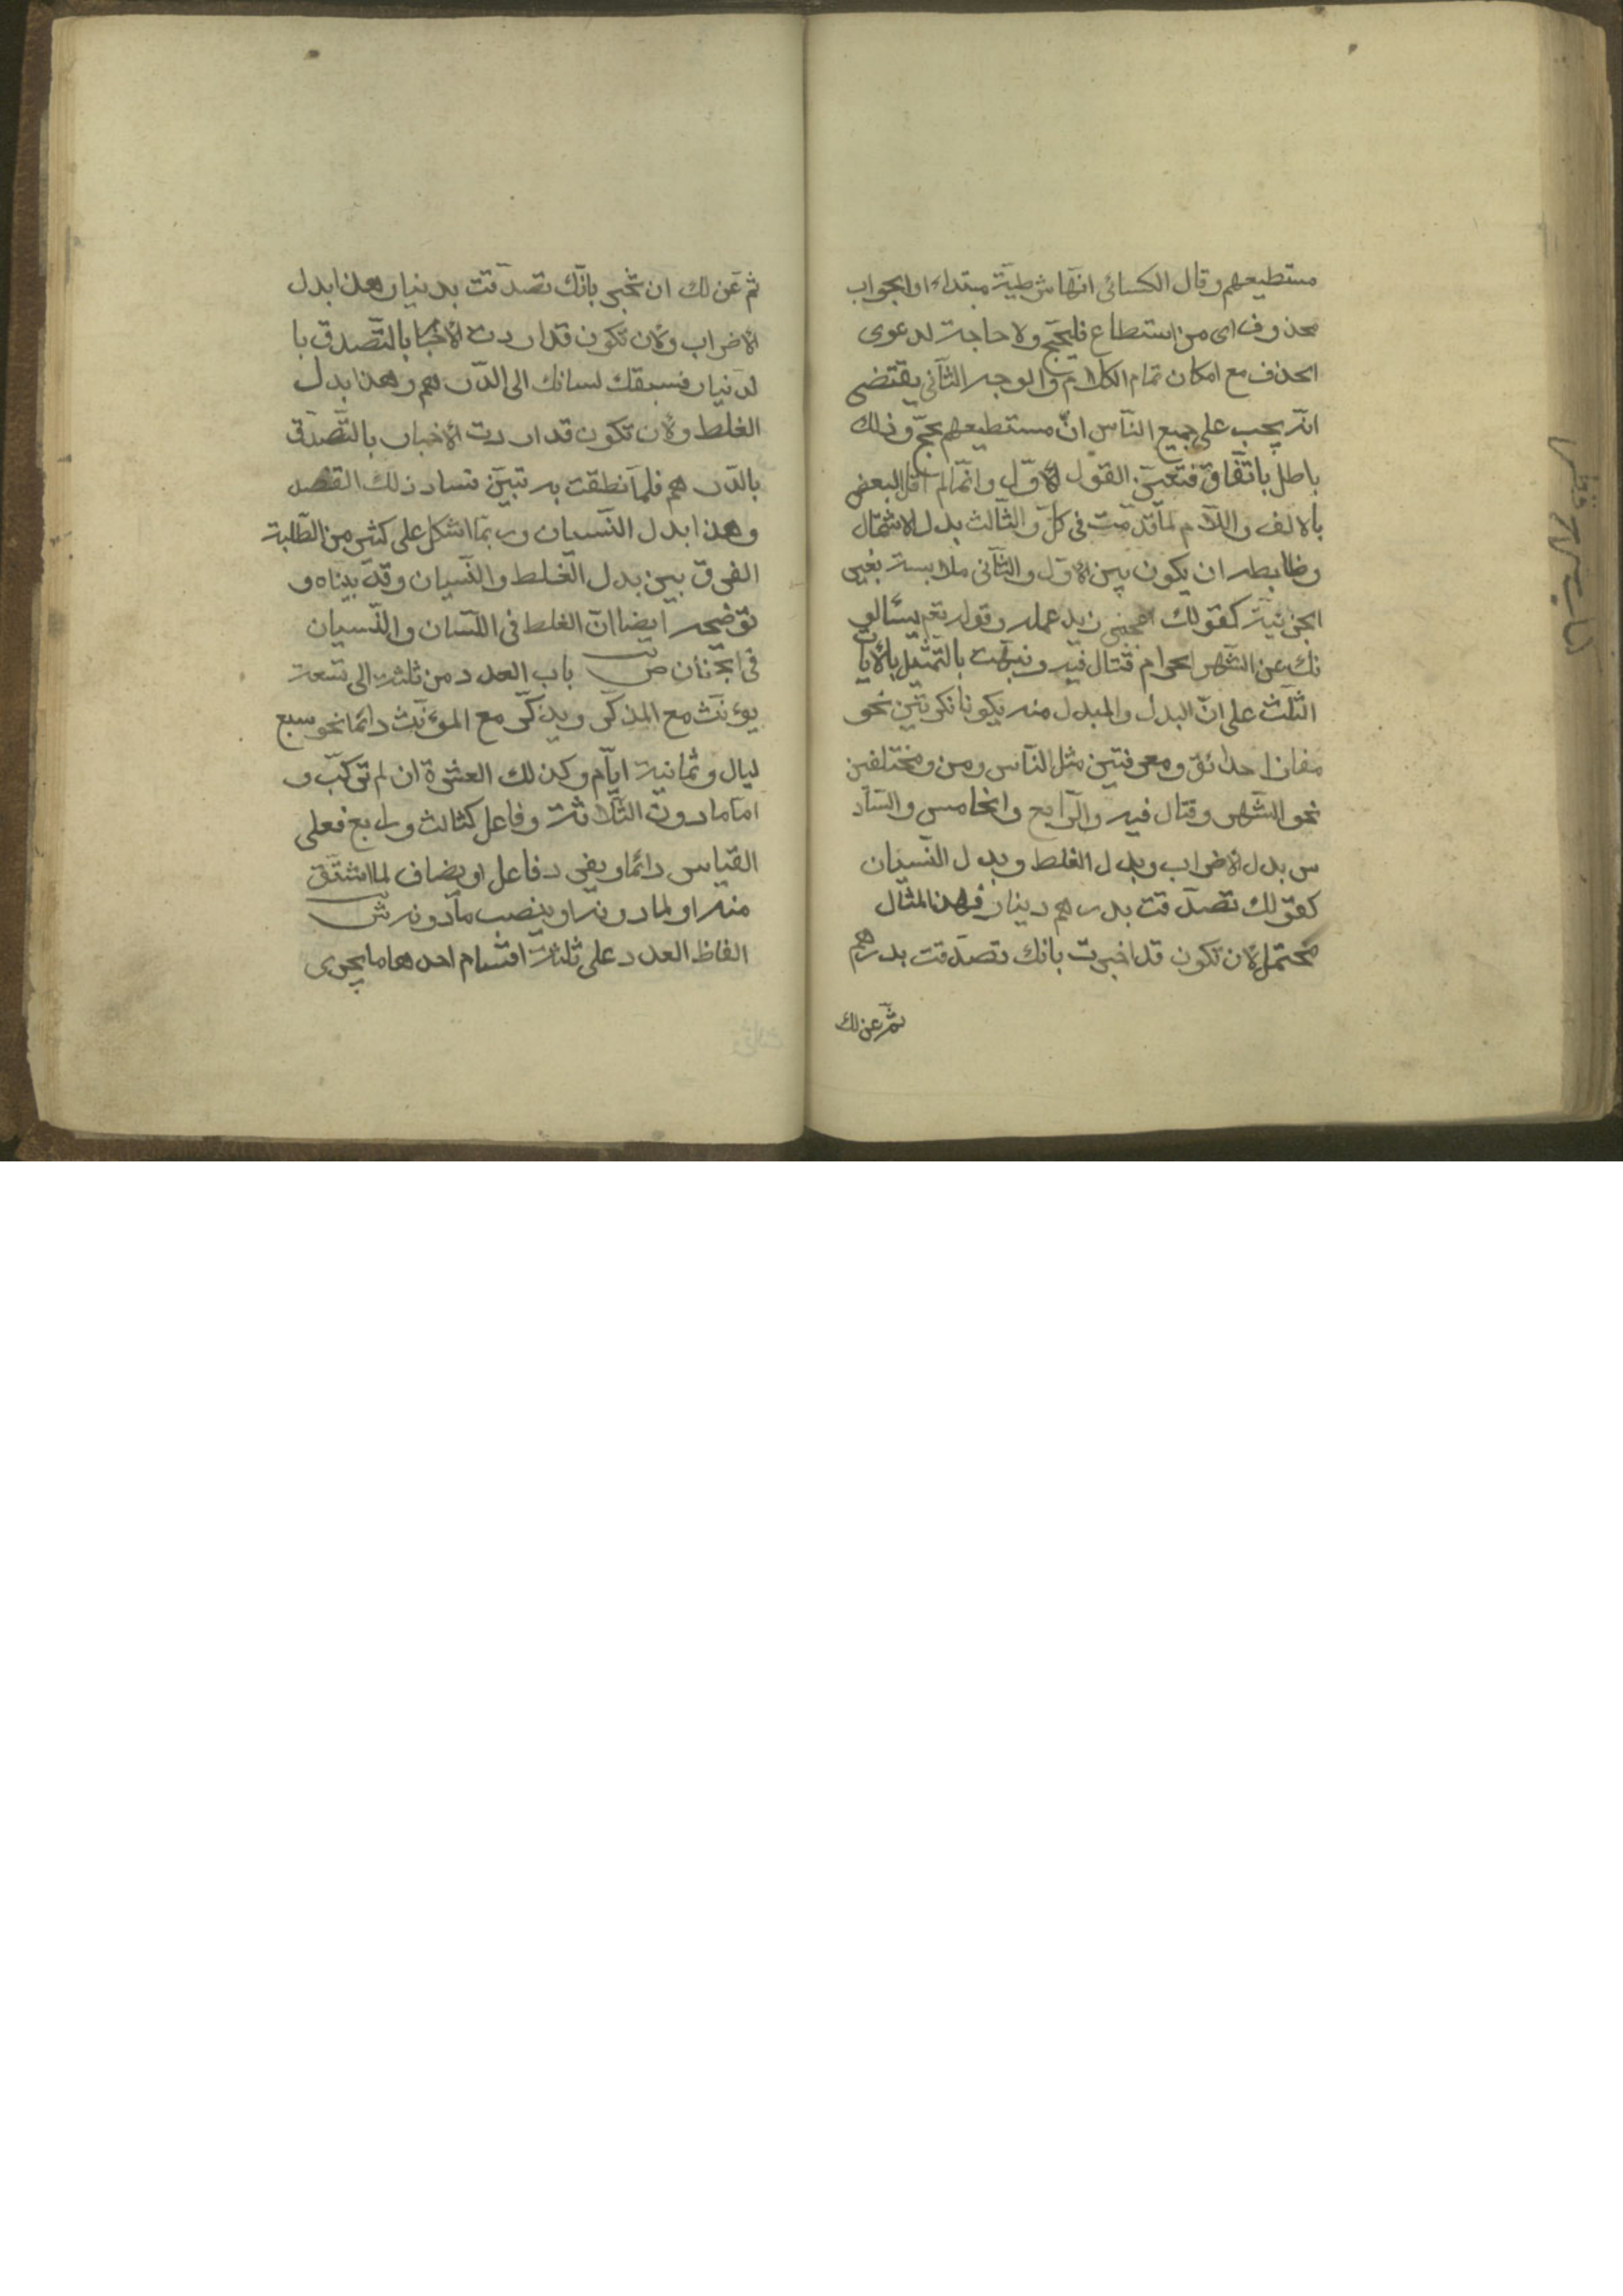 مستطيعهم وقال الكسائى انّها شرطيّة مبتداء والجواب
محذوف اى من استطاع فليحجّ ولا حاجة لدعوى
الحذف مع امكان تمام الكلام والوجه الثّانى يقتضى
انّه يجب على جميع النّاس انّ مستطيعهم يحجّ وذلك
باطل باتّفاق فتعيّن القول الاوّل وانّما لم اقل البعض
بالالف واللّام لما قدّمت فى كلّ والثّالث بدل الاشتمال
وضابطه ان يكون بين الاوّل والثّانى ملابسة بغير
الجزئيّة كقولك اعجبنى زيد عمله وقوله تعم يسئالو
نك عن الشّهر الحرام قتال فيه ونبهت بالتّمثيل بالآيات
الثلث على انّ البدل والمبدل منه يكونا نكرتين نحو
مفازا حدائق ومعرفتين مثل النّاس ومن ومختلفين
نحو الشّهر وقتال فيه والرّابع والخامس والسّاد
س بدل الاضراب وبدل الغلط وبدل النّسيان
كقولك تصدّقت بدرهم دينار فهذا المثال
محتمل لان تكون قد اخبرت بانك تصدّقت بدرهم
ثمّ عن لك
ثم عن لك ان تخبر بانّك تصدّقت بدينار وهذا بدل
الاضراب ولان تكون قد اردت الاخبار بالتّصدق با
لدّينار فسبقك لسانك الى الدّرهم وهذا بدل
الغلط ولان تكون قد اردت الاخبار بالتّصدّق
بالدّرهم فلمّا نطقت به تبيّن فساد ذلك القصد
وهذا بدل النّسيان وربّما اشكل على كثير من الطّلبة
الفرق بين بدل الغلط والنّسيان وقد بيّناه و
توضيحه ايضا انّ الغلط فى اللّسان والنّسيان
فى الجنان ص باب العدد من ثلثة الى تسعة
يوءنّث مع المذكّر ويذكّر مع الموءنّث دائما نحو سبع
ليال وثمانية ايّام وكذلك العشرة ان لم تركّب و
امّا ما دون الثّلاثة وفاعل كثالث ورابع فعلى
القياس دائما ويفرد فاعل او يضاف لما اشتقّ
منه او لما دونه او ينصب ما دونه ش
الفاظ العدد على ثلثة اقسام احدها ما يجرى